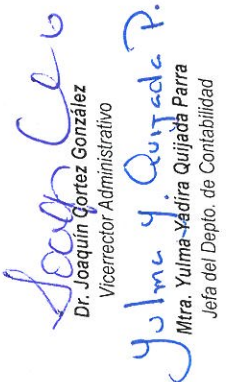 Dr. Joaquín Cortez González
Vicerrector Administrativo
Yulma Y. Quijada P.
Mtra. Yulma Yadira Quijada Parra
Jefa del Depto. de Contabilidad